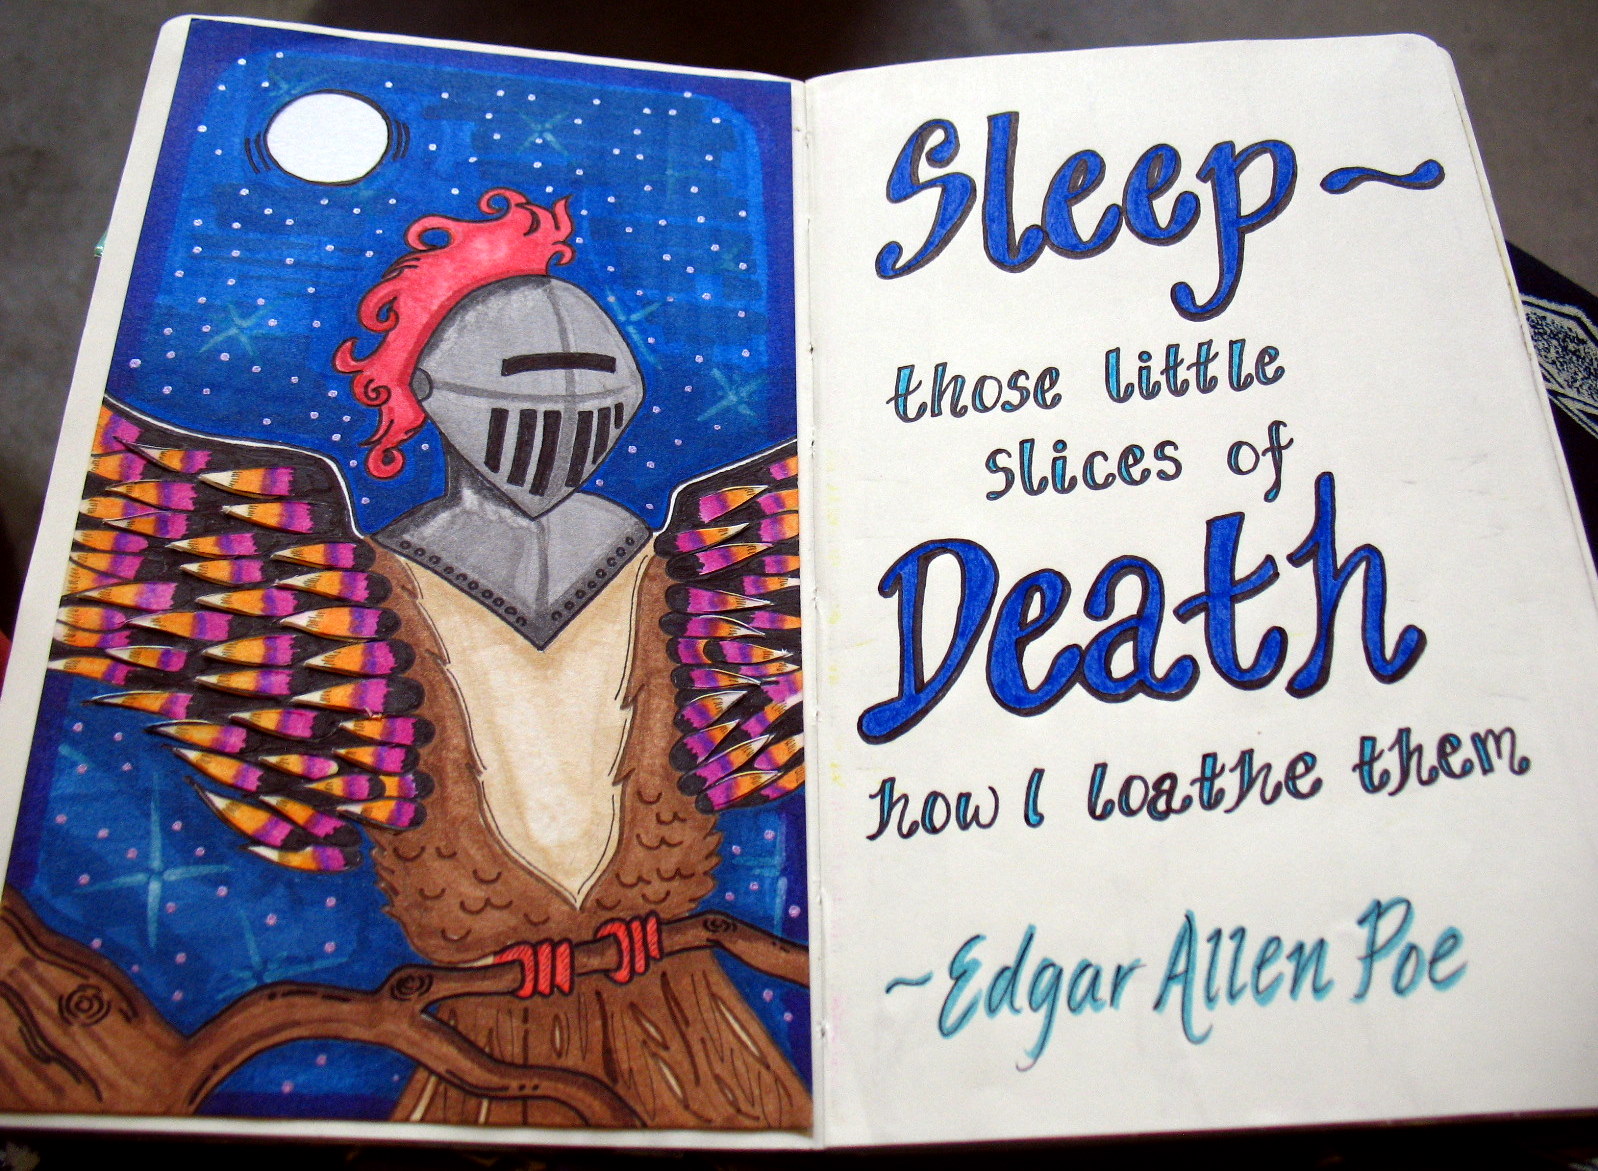 Sleep~
those little
slices of
Death
how I loathe them
~Edgar Allen Poe